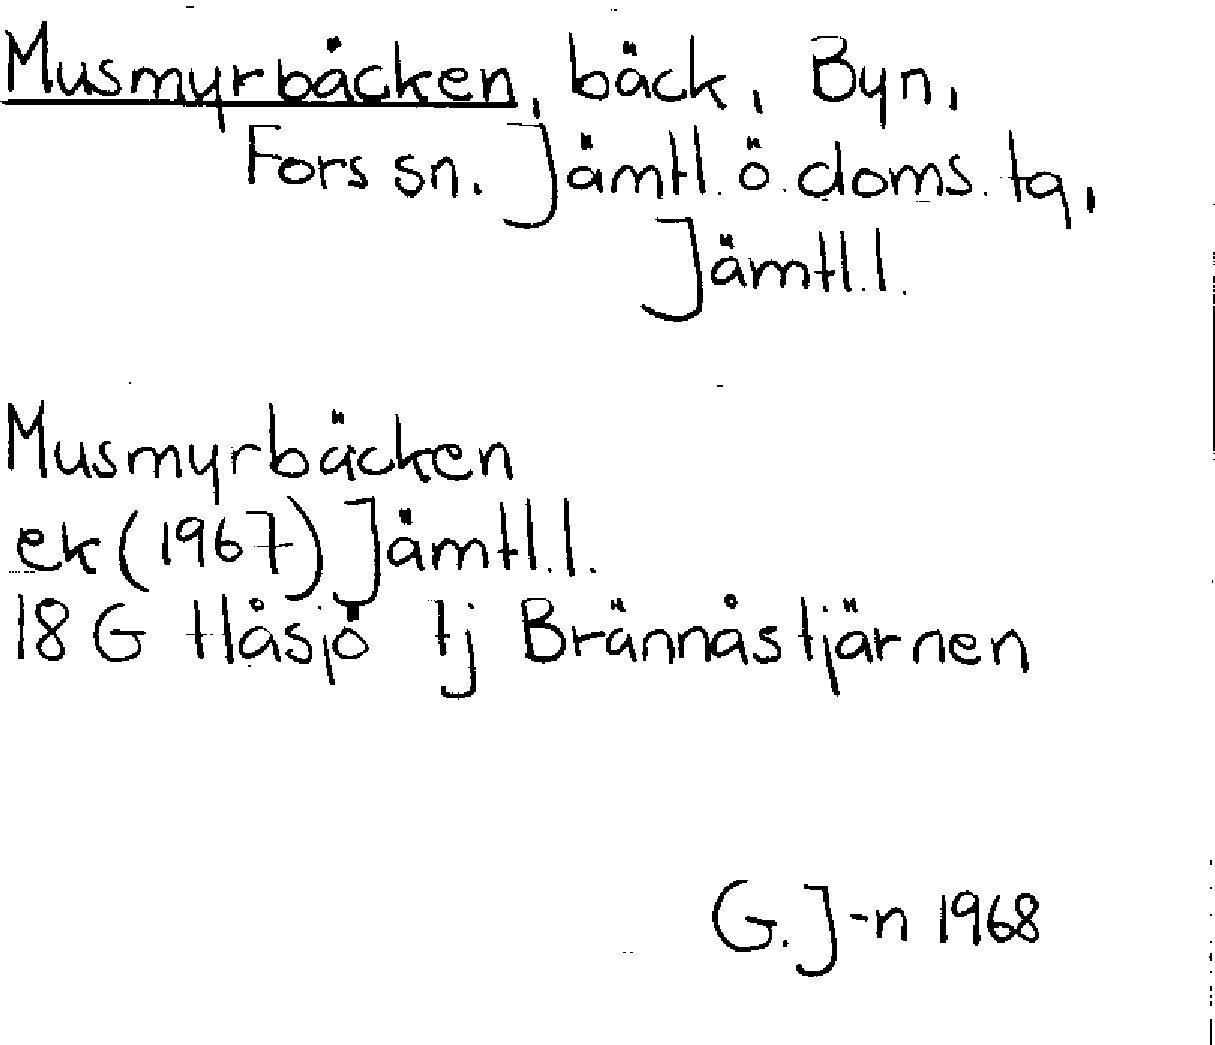 Musmyrbäcken, bäck, Byn,
Fors sn. Jämtl. ö. doms. tg,
Jämtl. l.
Musmyrbäcken
ek (1967) Jämtl. l.
18 G Håsjö tj Brännåstjärnen
G. J-n 1968